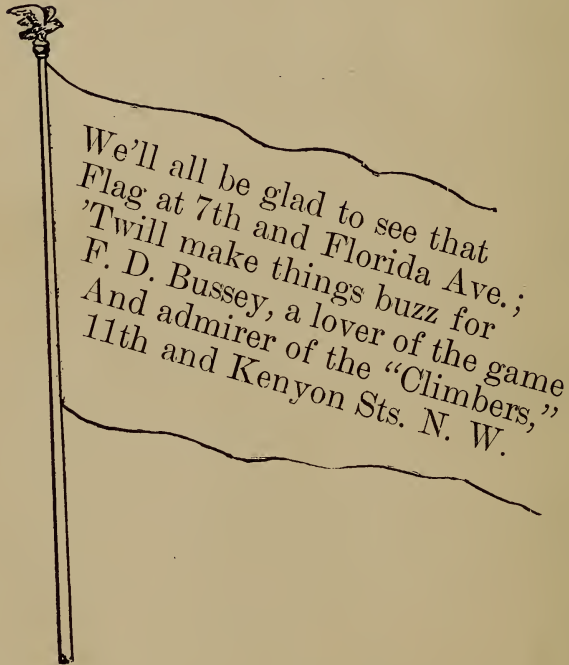 We'll all be glad to see that
Flag at 7th and Florida Ave.;
'Twill make things buzz for
F. D. Bussey, a lover of the game
And admirer of the "Climbers,"
11th and Kenyon Sts. N. W.